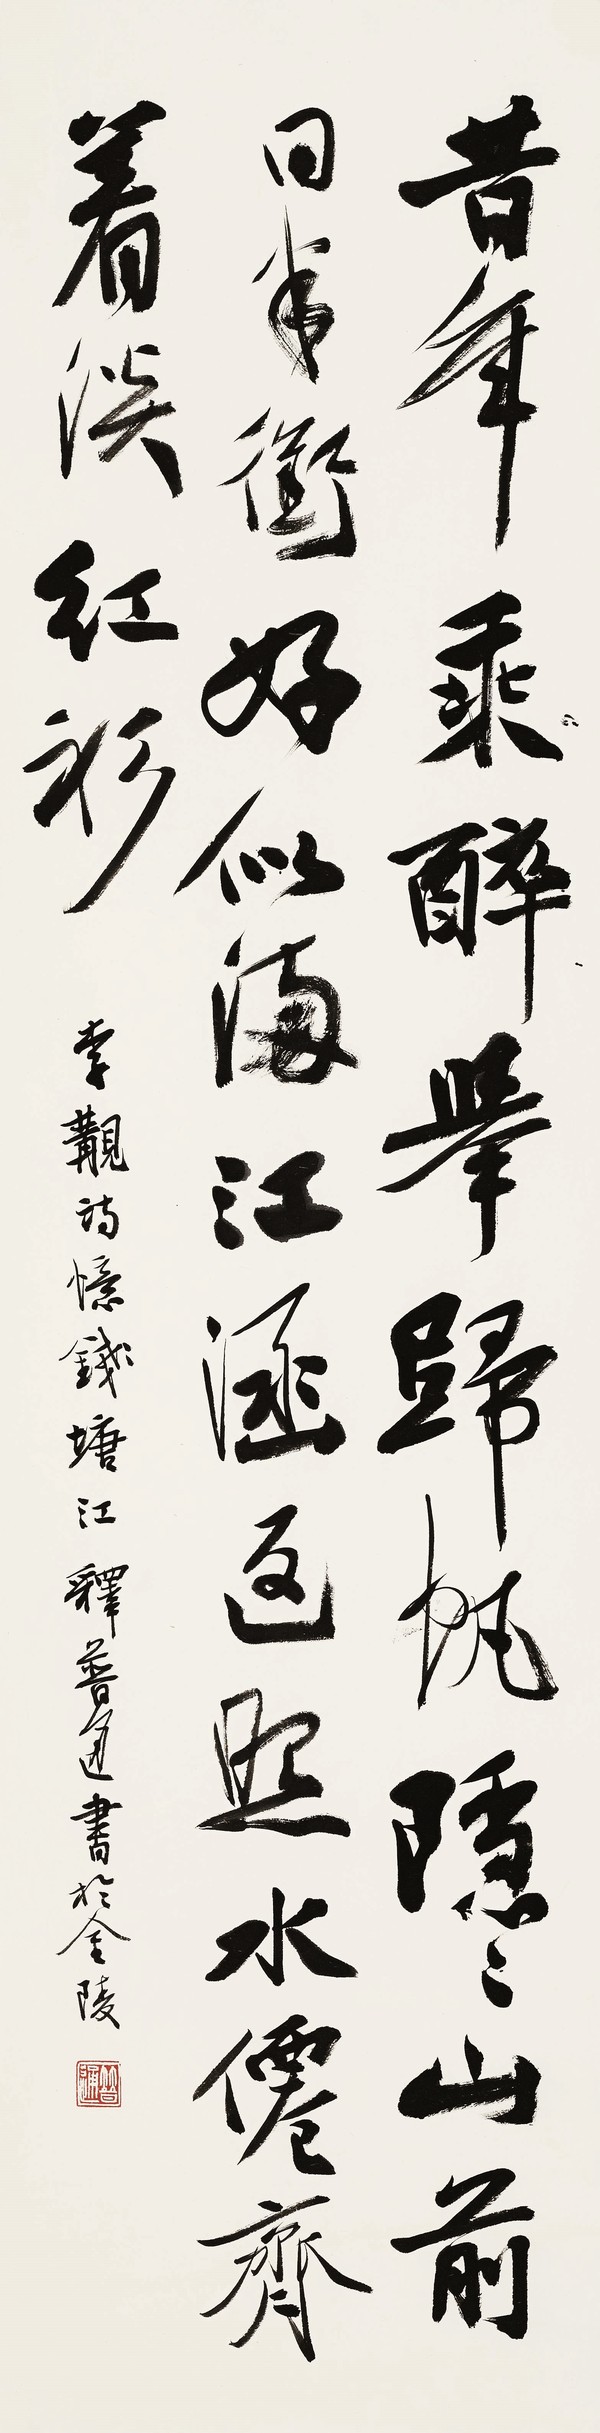 昔年乘醉舉歸帆隱〻山前
日半銜好似滿江涵返照水僊齊
着淡紅衫
李覯詩憶錢塘江釋普通書於金陵
普通